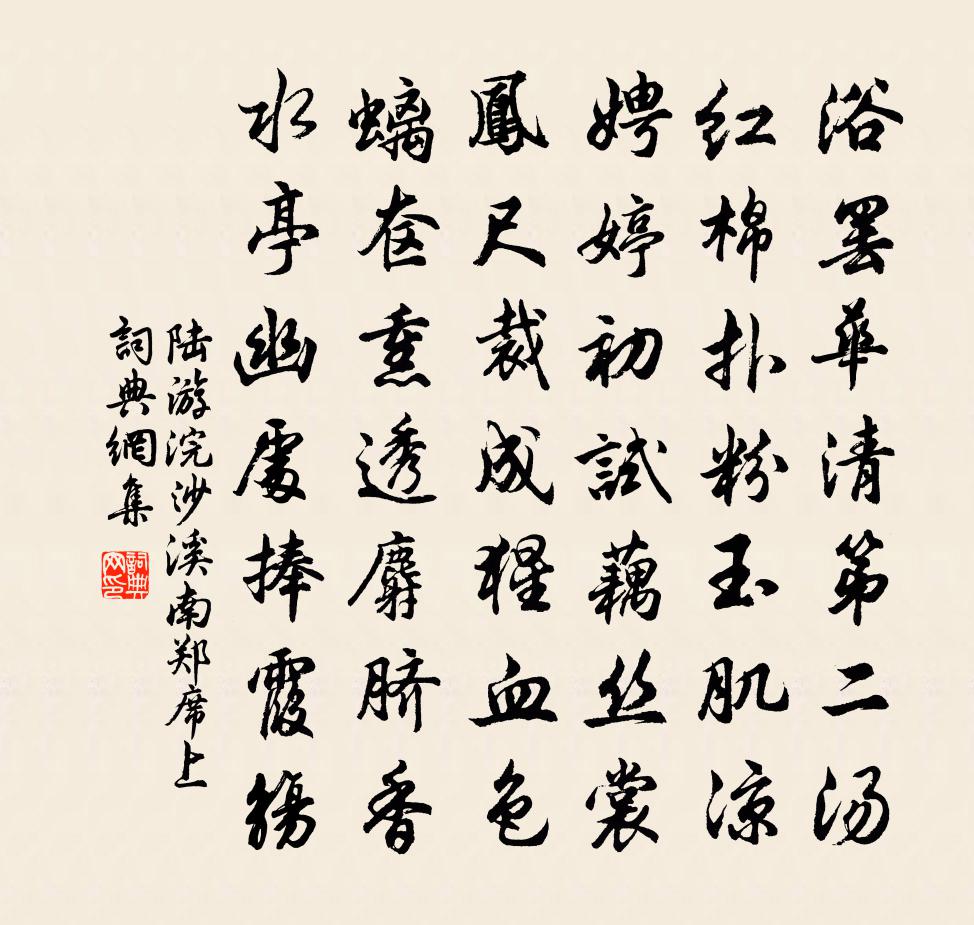 浴罢华清第二汤
红棉扑粉玉肌凉
娉婷初試藕丝裳
鳳尺裁成猩血色
螭奁熏透麝脐香
水亭幽處捧霞觴
陆游浣沙溪南郑席上
詞典網集
詞典网印